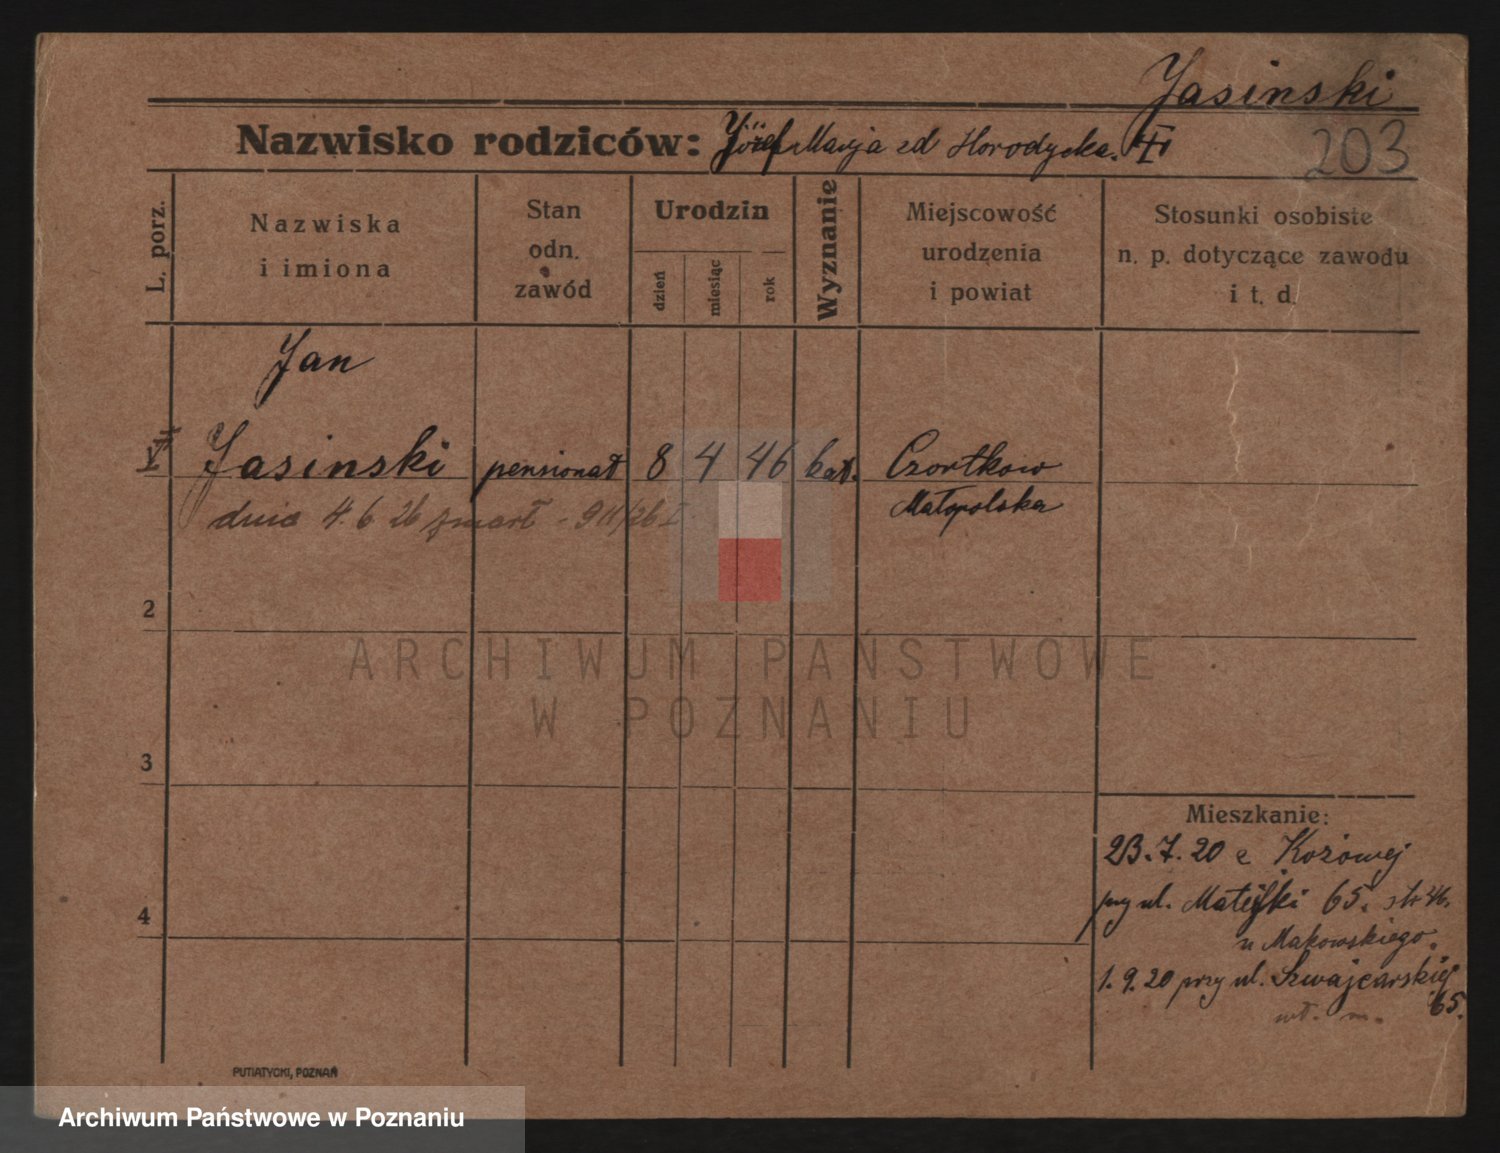 Jasinski
Nazwisko rodziców: Józef Marja zd Horodycka.
203
L. porz.
Nazwiska
i imiona
Stan
odn.
zawód
Urodzin
dzień
miesiąc
rok
Wyznanie
Miejscowość
urodzenia
i powiat
Stosunki osobiste
n. p. dotyczące zawodu
i t. d.
Jan
Jasinski pensionat 8 4 46 kat. Czortkow
Małopolska
dnia 4. 6 26 zmarł
2
ARCHIWUM PAŃSTWOWE
W POZNANIU
3
Mieszkanie:
23.7.20 z Kozowej
przy ul. Matejki 65.
u Makowskiego.
4
1.9.20 przy ul. Szwajcarskiej
65.
PUTIATYCKI, POZNAŃ
Archiwum Państwowe w Poznaniu